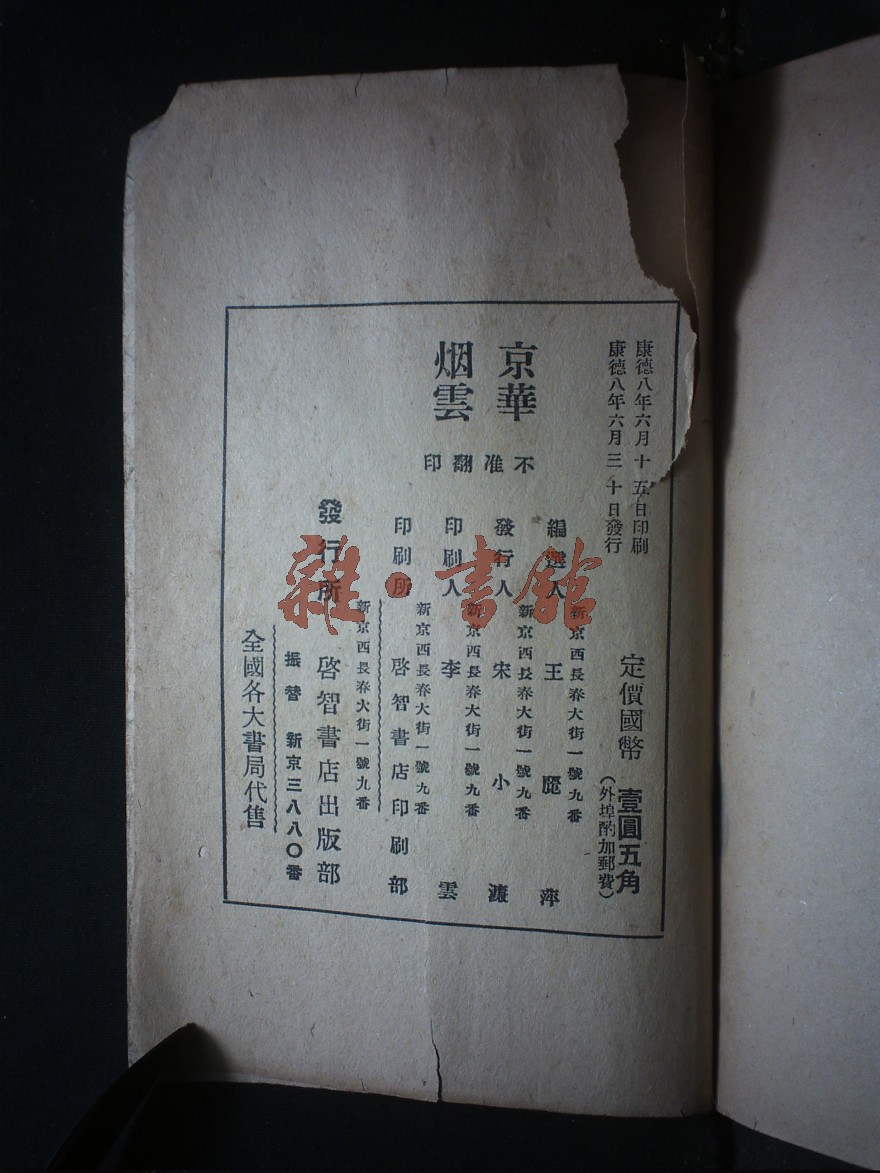 康德八年六月十五日印刷
康德八年六月三十日發行
定價國幣 壹圓五角
(外埠酌加郵費)
京華
烟雲
不准翻印
新京西長春大街一號九番
編選人 王麗萍
新京西長春大街一號九番
發行人 宋小濂
新京西長春大街一號九番
印刷人 李雲
新京西長春大街一號九番
印刷所 啓智書店印刷部
新京西長春大街一號九番
發行所 啓智書店出版部
振替 新京三八八〇番
全國各大書局代售
雜·書館